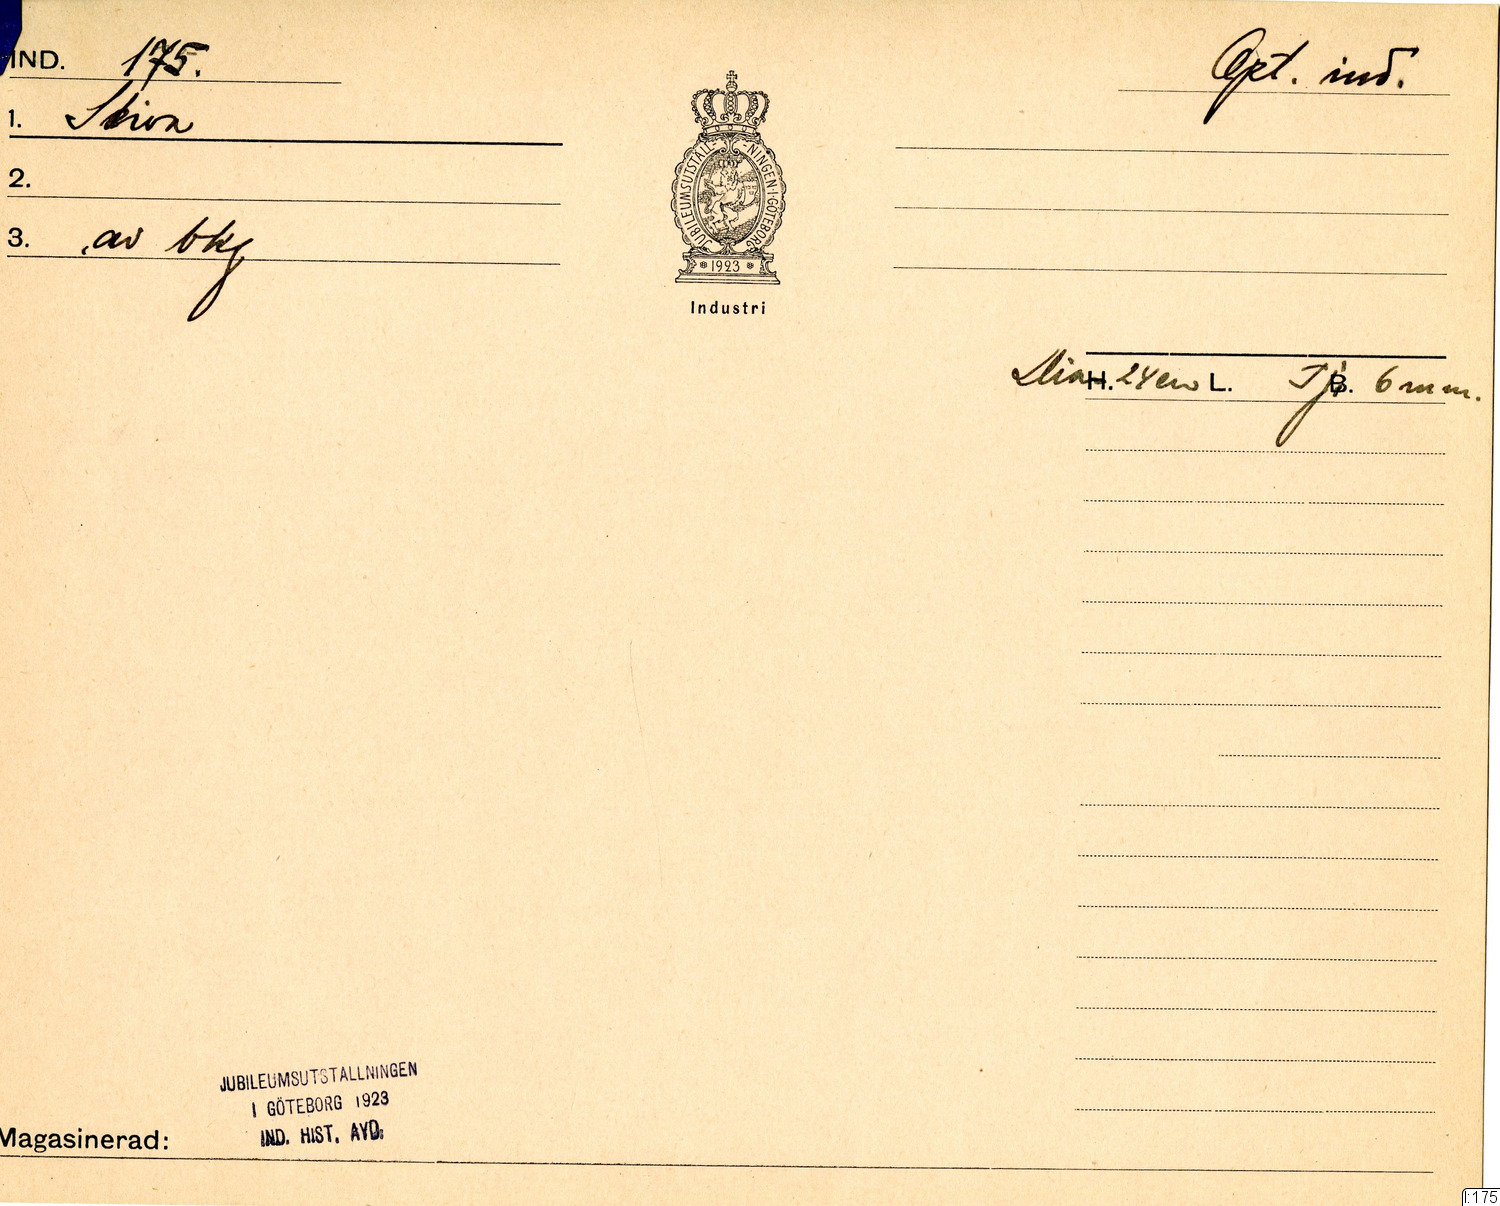 IND. 175.
Opt. ind.
1. Skiva
2.
3. av bkg
JUBILEUMSUTSTÄLL-NINGEN·I·GÖTEBORG
1923
Industri
Diam. H. 24 cm L. Tj. B. 6 mm.
JUBILEUMSUTSTALLNINGEN
I GÖTEBORG 1923
IND. HIST. AVD.
Magasinerad:
I:175